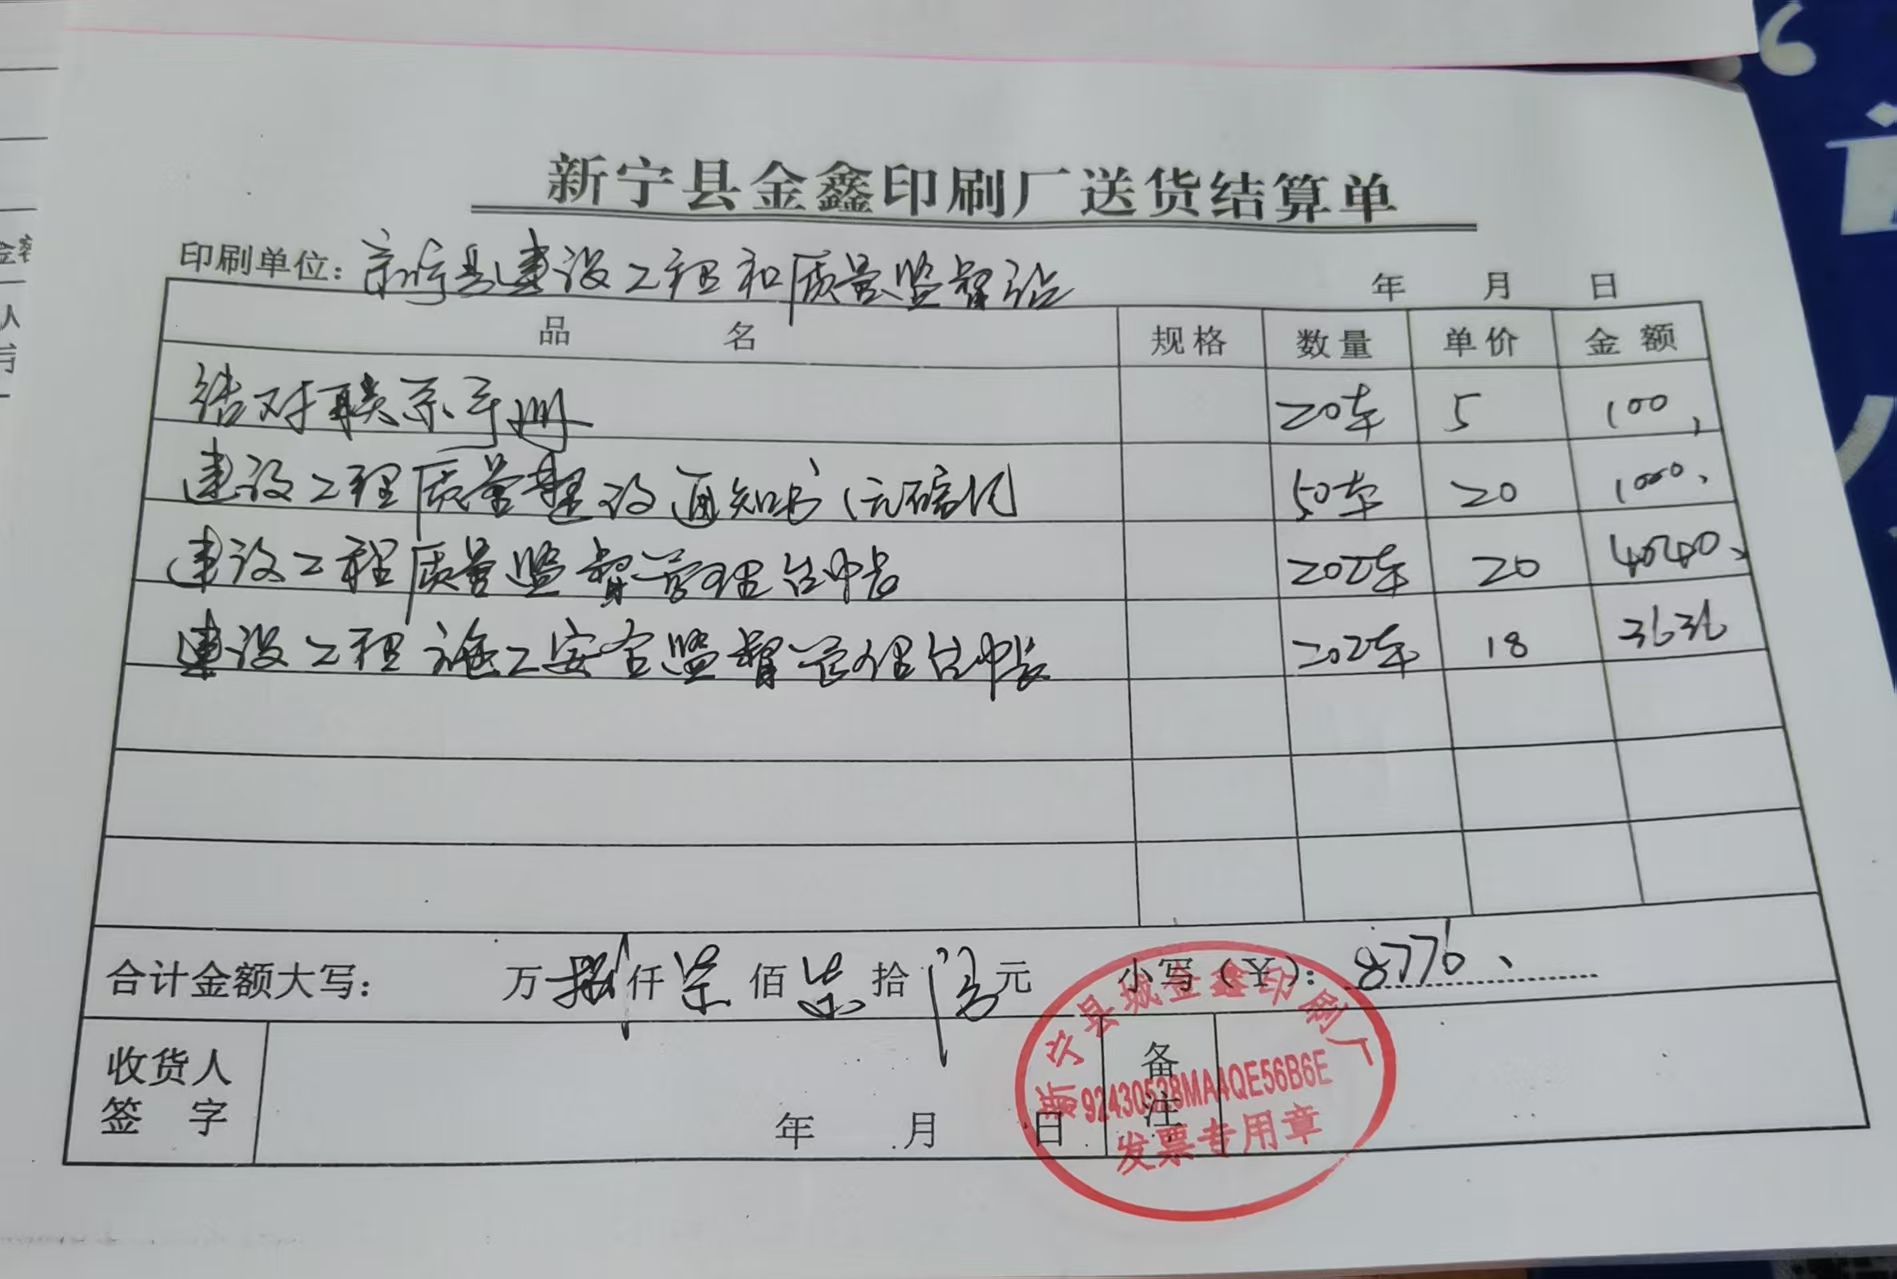 新宁县金鑫印刷厂送货结算单
印刷单位：新宁县建设工程和质量监督站 年 月 日
品 名 规格 数量 单价 金额
结对联系手册 20本 5 100
建设工程质量整改通知书（无碳纸） 50本 20 1000
建设工程质量监督管理台帐 202本 20 4040
建设工程施工安全监督管理台帐 202本 18 3636
合计金额大写： 万捌仟柒佰柒拾陆元 小写（¥）：8776
收货人
签 字
年 月 日
备
注
新宁县城金鑫印刷厂
92430528MA4QE56B6E
发票专用章